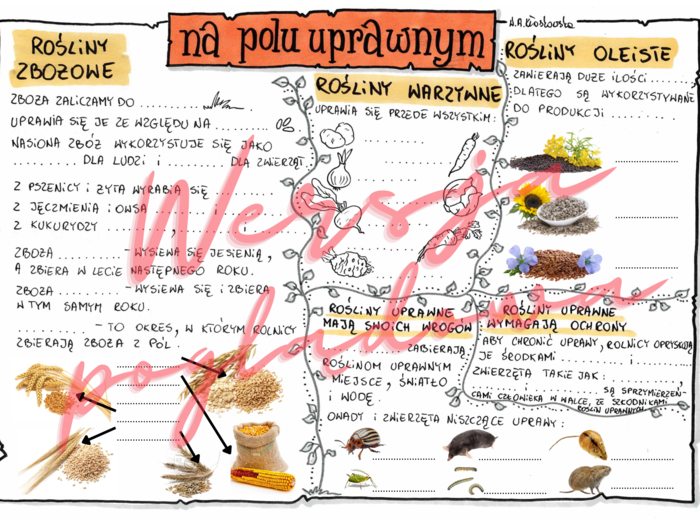 na polu uprawnym
A.A.Kosłowska
ROŚLINY
ZBOŻOWE
ZBOŻA ZALICZAMY DO ..........
UPRAWIA SIĘ JE ZE WZGLĘDU NA ..........
NASIONA ZBÓŻ WYKORZYSTUJE SIĘ JAKO
.......... DLA LUDZI i .......... DLA ZWIERZĄT.
Z PSZENICY i ŻYTA WYRABIA SIĘ ..........
Z JĘCZMIENIA i OWSA .......... i ..........
Z KUKURYDZY .........., .......... i ..........
ZBOŻA .......... - WYSIEWA SIĘ JESIENIĄ,
A ZBIERA W LECIE NASTĘPNEGO ROKU.
ZBOŻA .......... - WYSIEWA SIĘ i ZBIERA
W TYM SAMYM ROKU.
.......... - TO OKRES, W KTÓRYM ROLNICY
ZBIERAJĄ ZBOŻA Z PÓL.
ROŚLINY WARZYWNE
UPRAWIA SIĘ PRZEDE WSZYSTKIM:
ROŚLINY OLEISTE
ZAWIERAJĄ DUŻE ILOŚCI ..........
DLATEGO SĄ WYKORZYSTYWANE
DO PRODUKCJI ..........
ROŚLINY UPRAWNE
MAJĄ SWOICH WROGÓW
.......... ZABIERAJĄ
ROŚLINOM UPRAWNYM
MIEJSCE, ŚWIATŁO
i WODĘ.
OWADY i ZWIERZĘTA NISZCZĄCE UPRAWY:
ROŚLINY UPRAWNE
WYMAGAJĄ OCHRONY
ABY CHRONIĆ UPRAWY, ROLNICY OPRYSKUJĄ
JE ŚRODKAMI .......... i ..........
ZWIERZĘTA TAKIE JAK: ..........,
.......... i .......... SĄ SPRZYMIERZEŃ-
CAMI CZŁOWIEKA W WALCE ZE SZKODNIKAMI
ROŚLIN UPRAWNYCH
Wersja
poglądowa